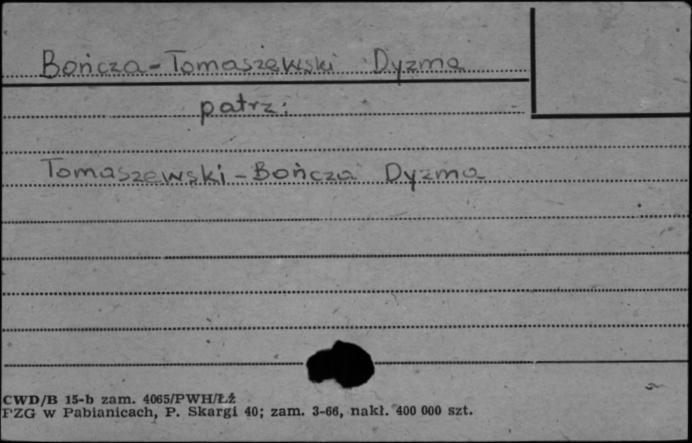 Bończa-Tomaszewski Dyzma
patrz:
Tomaszewski-Bończa Dyzma
CWD/B 15-b zam. 4065/PWH/Łź
PZG w Pabianicach, P. Skargi 40; zam. 3-66, nakł. 400 000 szt.